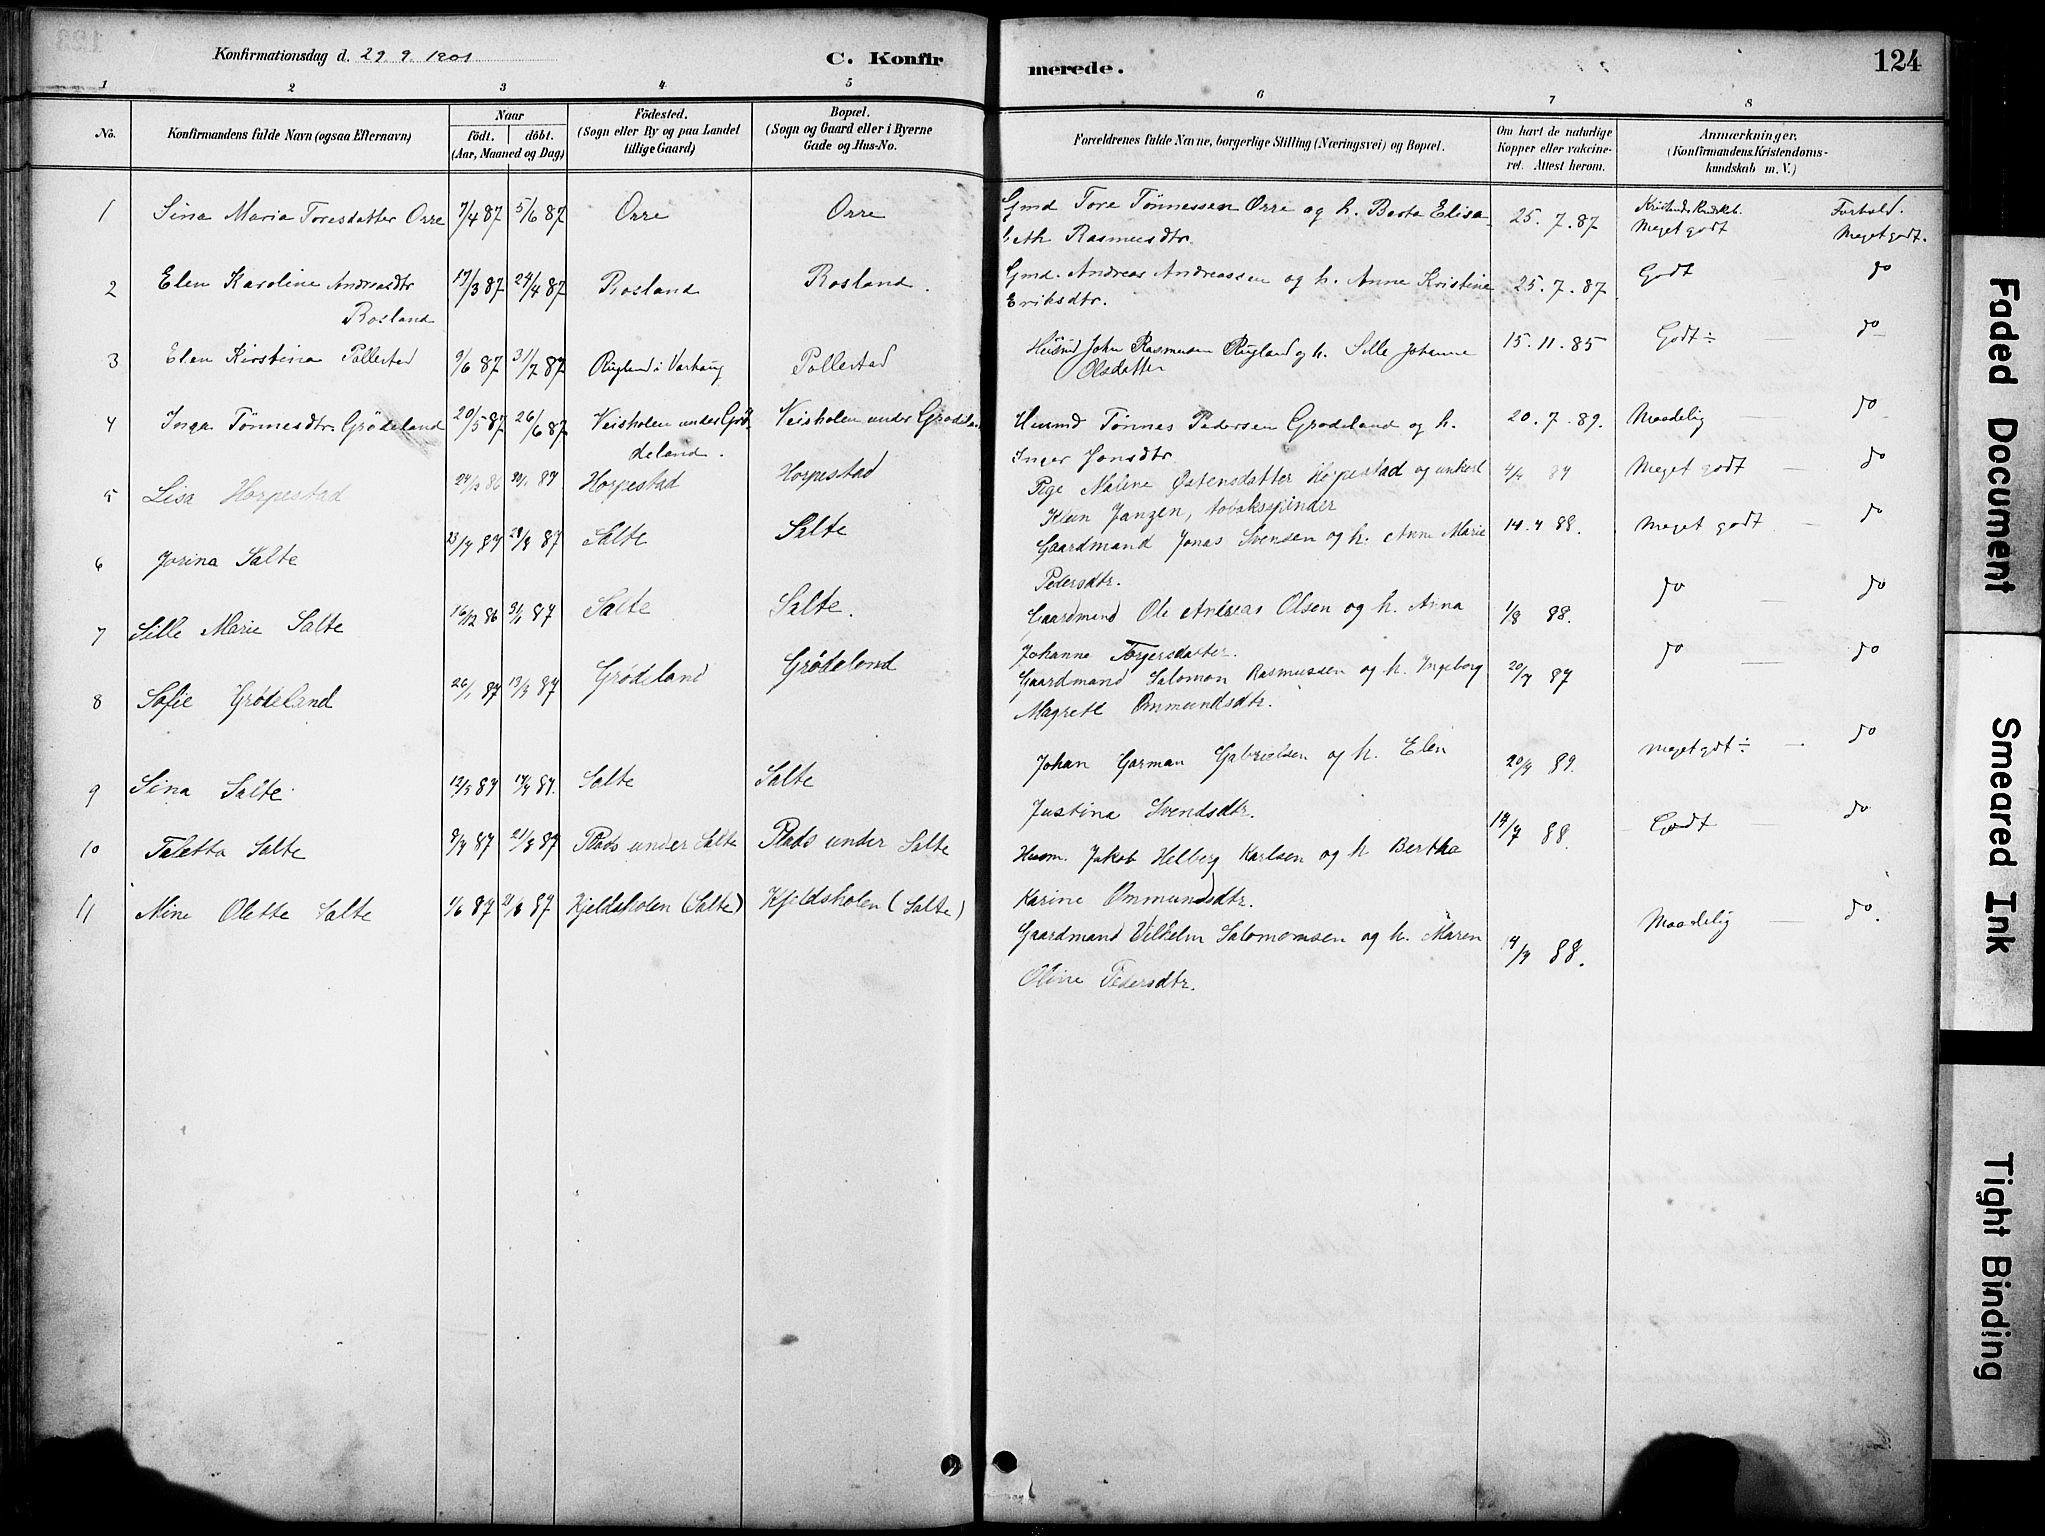 Konfirmationsdag d. 29 9 1901
C. Konfir
merede.
124
1 2 3 4 5 6 7 8
No.
Konfirmandens fulde Navn (ogsaa Efternavn)
Naar
födt. döbt.
(Aar, Maaned og Dag)
Födested.
(Sogn eller By og paa Landet
tillige Gaard)
Bopæl.
(Sogn og Gaard eller i Byerne
Gade og Hus-No.
Forældrenes fulde Navne, borgerlige Stilling (Næringsvei) og Bopæl.
Om havt de naturlige
Kopper eller vakcine-
ret. Attest herom.
Anmærkninger.
(Konfirmandens Kristendoms-
kundskab m. V.)
1 Sina Maria Toresdatter Orre 7/4 87 5/6 87 Orre Orre Gmd Tore Tønnessen Orre og h. Berta Elisa- 25. 7. 87 Meget godt Forhold.
beth Rasmusdtr. Meget godt.
2 Elen Karoline Andreasdtr 17/3 87 24/4 87 Rosland Rosland. Gmd. Andreas Andreassen og h. Anne Kristine 25. 7. 87 Godt do
Rosland Eriksdtr.
3 Elen Kirstina Pollestad 9/6 87 31/7 87 Rugland i Varhaug Pollestad Husmd John Rasmusen Rugland og h. Sille Johanne 15. 11. 85 Godt ÷ do
Olsdatter
4 Inga Tønnesdtr. Grödeland 20/5 87 26/6 87 Veisholen under Grö- Veisholen under Grödeland Husmd Tönnes Pedersen Grødeland og h. 20. 7. 89. Maadelig do
deland. Inger Jonsdtr.
5 Lisa Horpestad Horpestad Horpestad Pige Maline Østensdatter Horpestad og unkarl 87 Meget godt — do
Klein Janzen, tobaksspinder
6 Jorina Salte 87 87 Salte Salte Gaardmand Jonas Svensen og h. Anne Marie 88. Meget godt — do
Pedersdtr.
7 Sille Marie Salte 16/12 86 3/1 87 Salte Salte. Gaardmand Ole Andreas Olsen og h. Anna 1/8 88. do — do
Johanne Torgersdatter.
8 Sofie Grødeland 26/1 87 13/3 87 Grødeland Grødeland Gaardmand Salomon Rasmussen og h. Ingeborg 87 do — do
Magrete Ommundsdtr.
9 Sina Salte 87 87. Salte Salte Johan Garman Gabrielsen og h. Elen 89. Meget godt ÷ — do
Justina Svendsdtr.
10 Taletta Salte 87 87 Plads under Salte Plads under Salte Husm. Jakob Helberg Karlsen og h Bertha 88. Godt — do
Karine Ommundsdtr.
11 Mine Olette Salte 1/6 87 21/8 87 Kjeldsholen (Salte) Kjeldsholen (Salte) Gaardmand Vilhelm Salomonsen og h. Maren 88. Maadelig — do.
Oline Pedersdtr.
Faded Document
Smeared Ink
Tight Binding